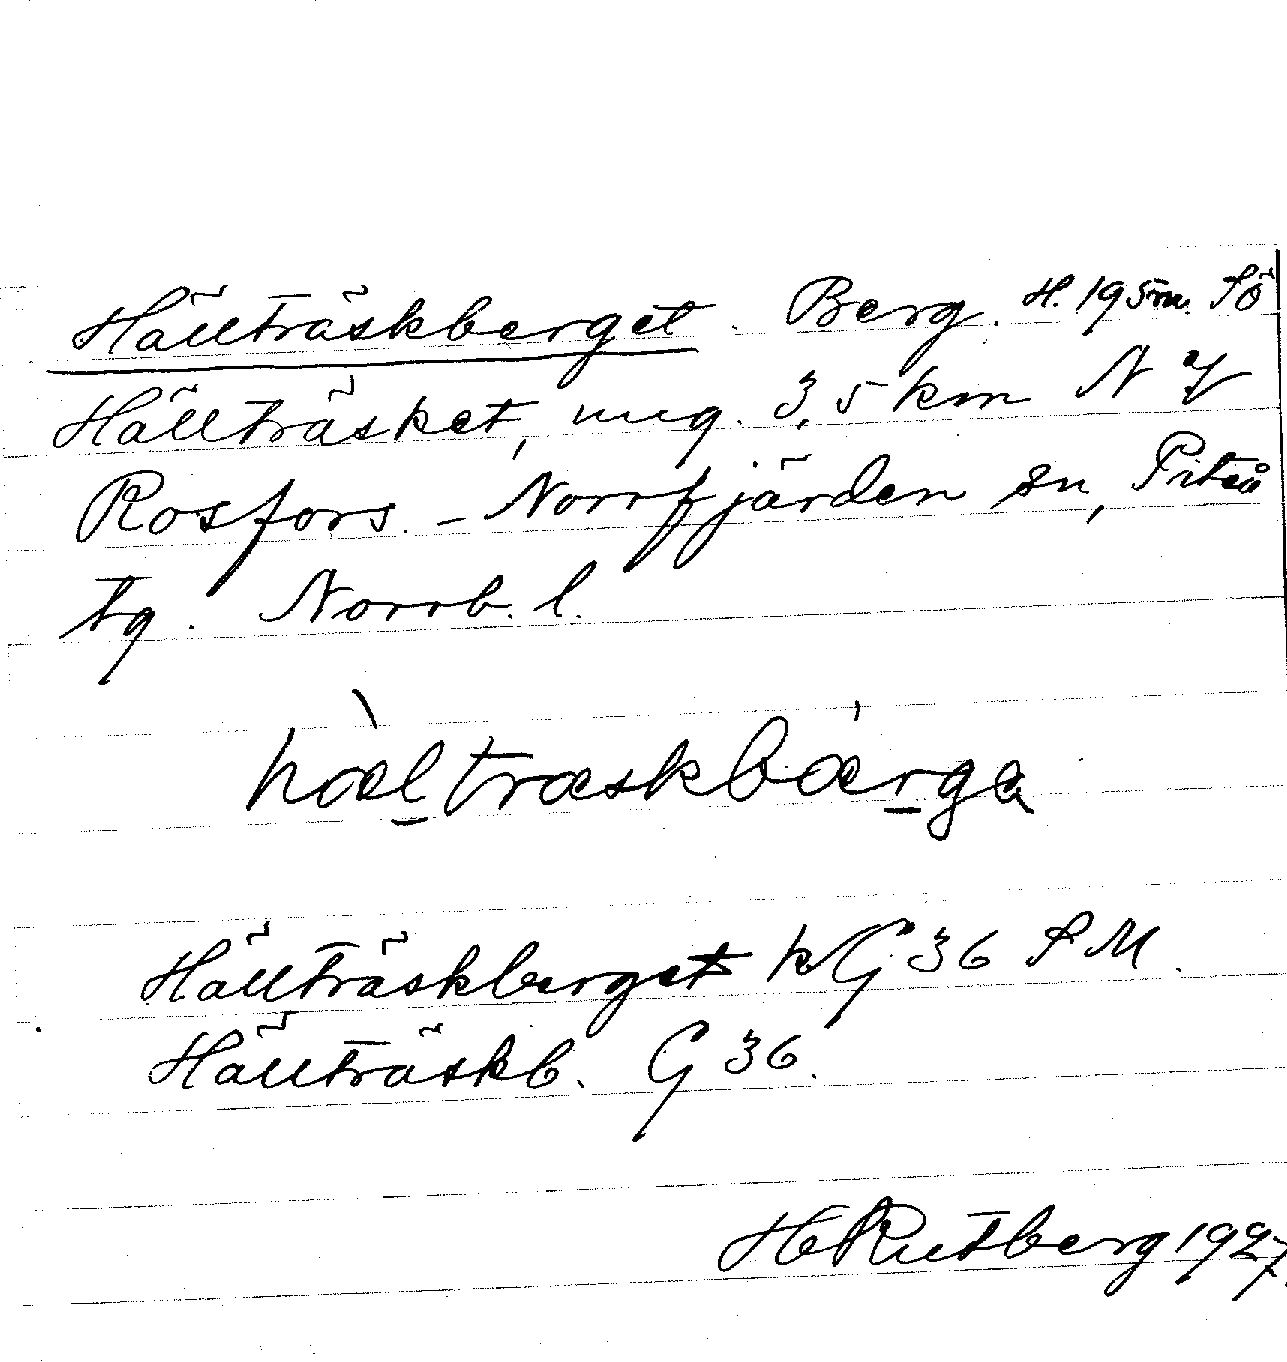 Hällträskberget. Berg. H. 195 m. SÖ
Hällträsket, ung. 3,5 km NV
Rosfors. - Norrfjärden sn, Piteå
tg. Norrb. l.
hæ̀l̠træskbæ̀r̠ga
Hällträskberget kG 36 SM.
Hällträskb. G 36.
H Rutberg 1927.